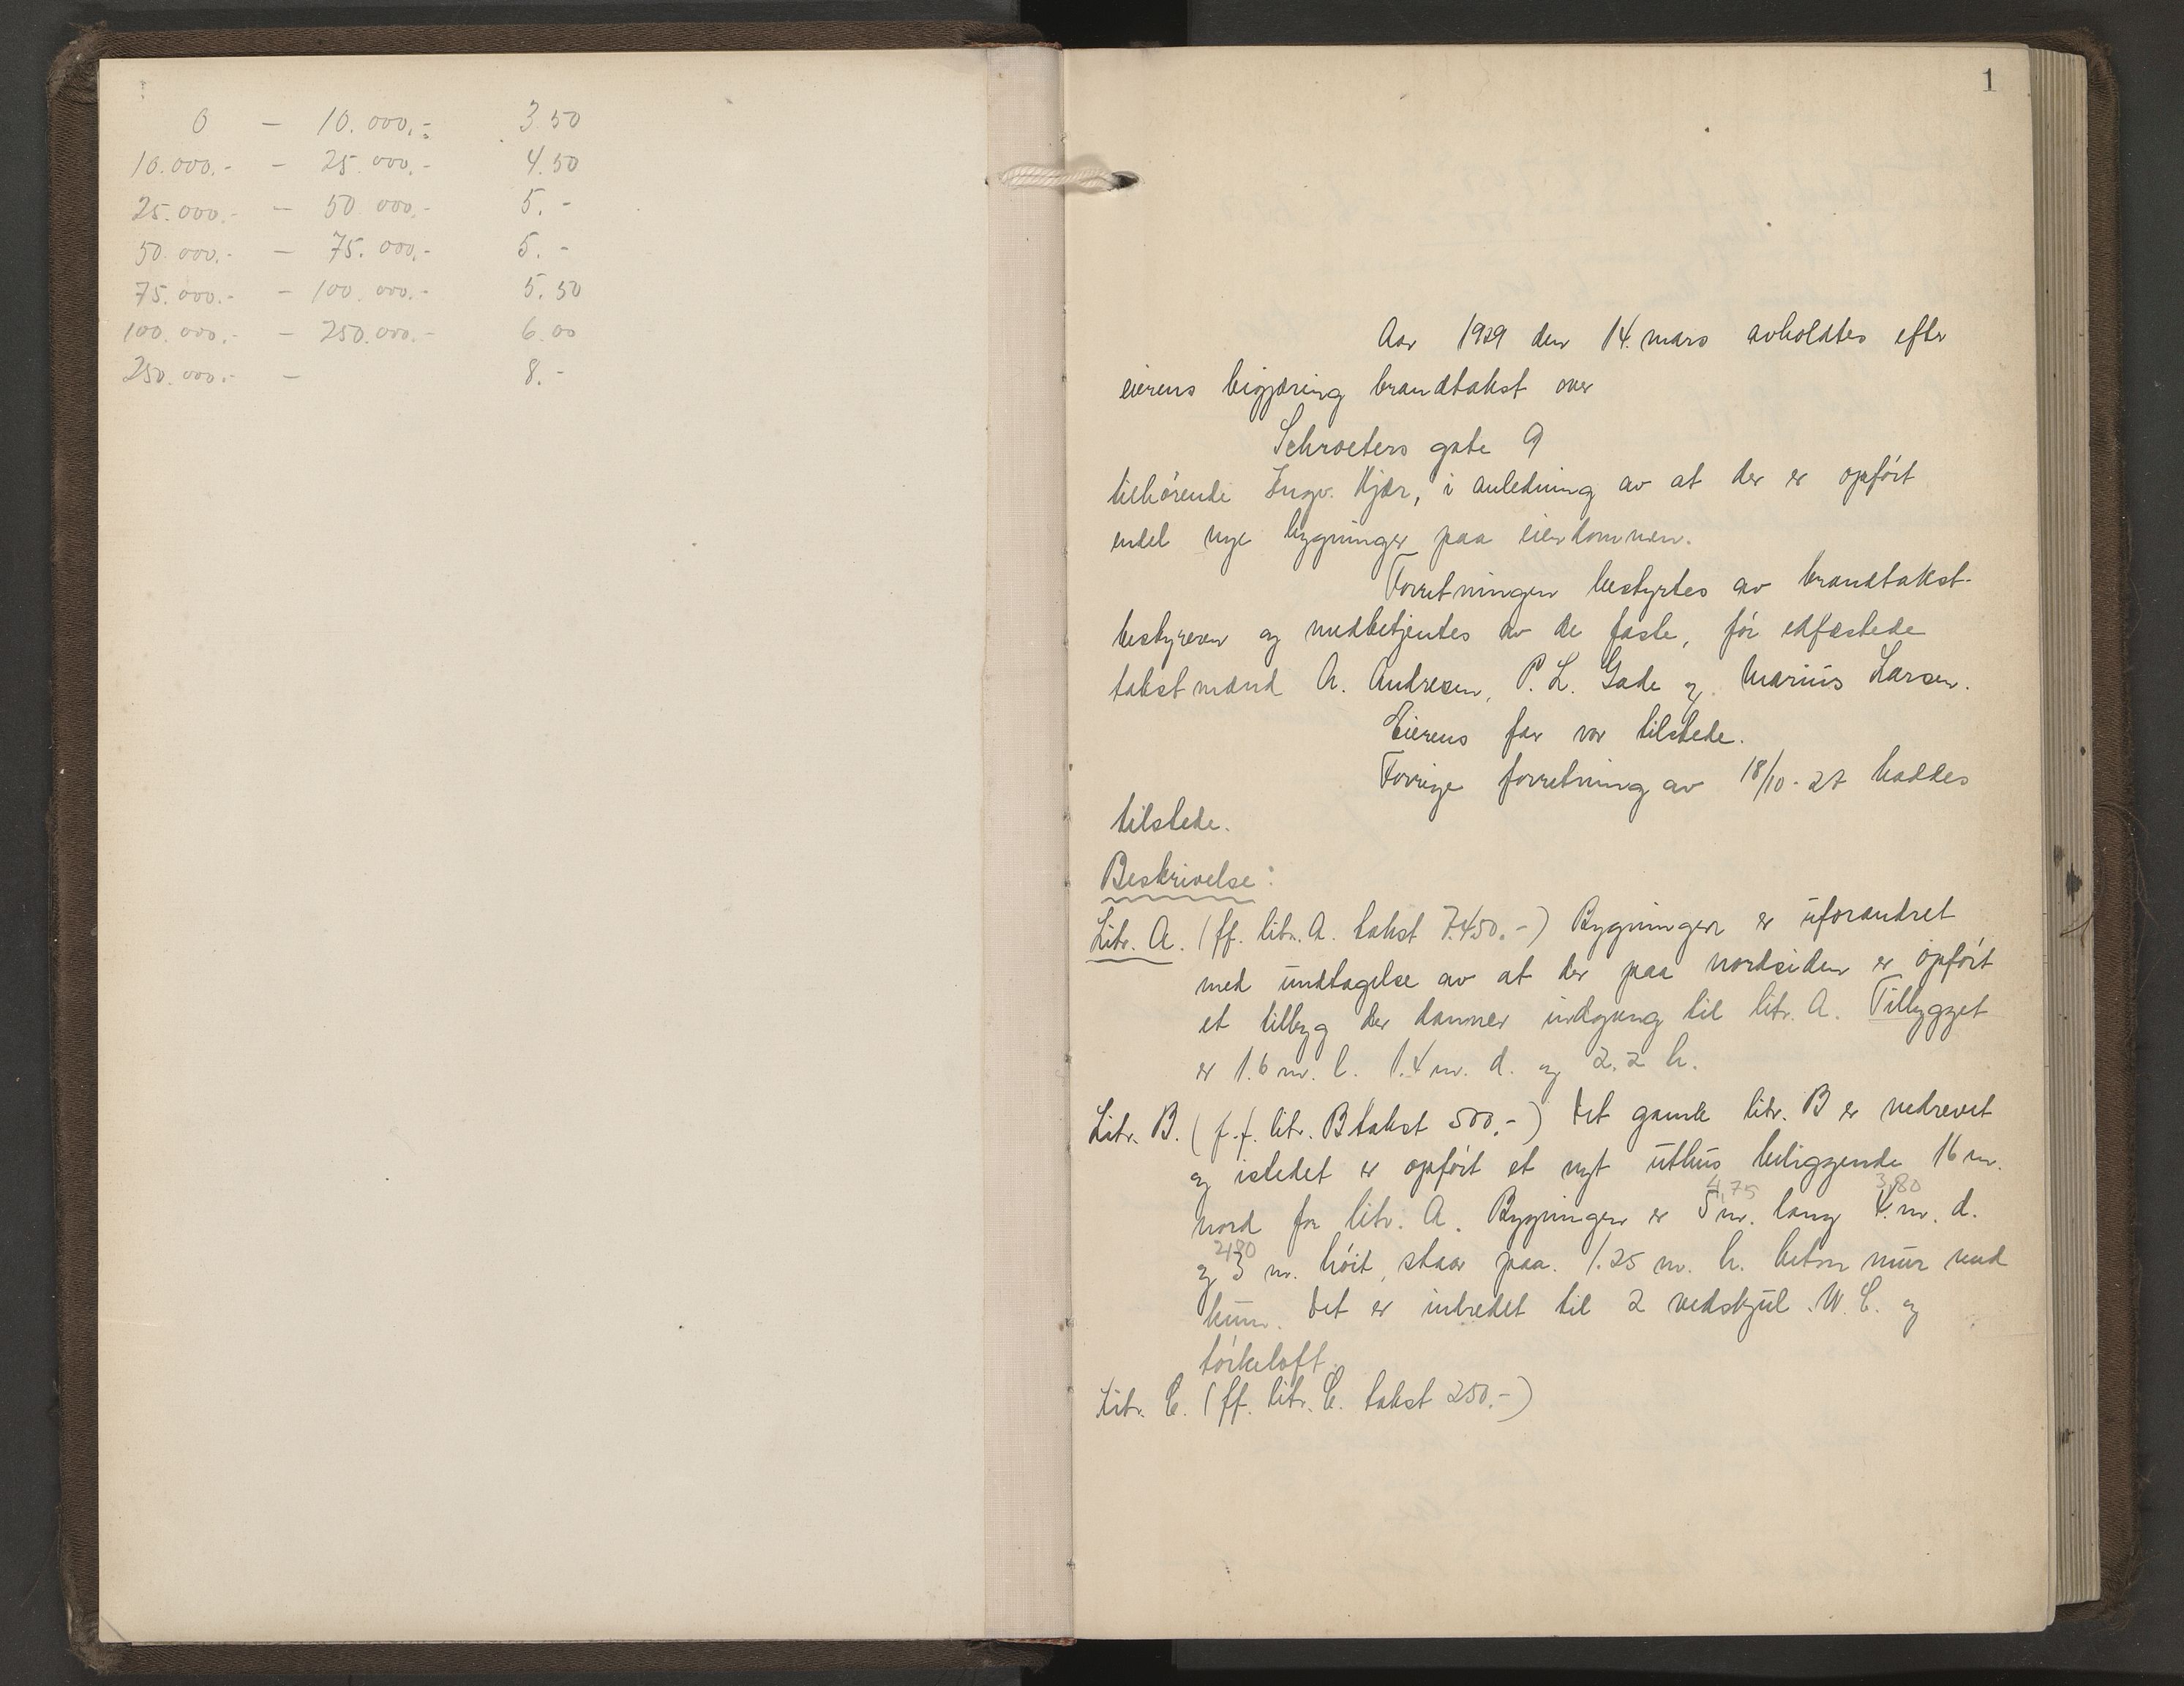 0 — 10.000.- 3.50
10.000.- — 25.000.- 4.50
25.000.- — 50.000.- 5.-
50.000.- — 75.000.- 5.-
75.000.- — 100.000.- 5.50
100.000.- — 250.000.- 6.00
250.000.- — 8.-
1
Aar 1929 den 14. mars avholdtes efter
eierens begjæring brandtakst over
Schroeters gate 9
tilhörende Ingv. Kjær, i anledning av at der er opfört
endel nye bygninger paa eiendommen.
Forretningen bestyrtes av brandtakst-
bestyreren og medbetjentes av de faste, för edfæstede
takstmænd A. Andresen, P. L. Gade og Marius Larsen.
Eierens far var tilstede.
Forrige forretning av 18/10-27 haddes
tilstede.
Beskrivelse:
Litr. A. (ff. litr. A. takst 7.450.-) Bygningen er uforandret
med undtagelse av at der paa nordsiden er opfört
et tilbyg der danner indgang til litr. A. Tilbygget
er 1.6 m. l. 1.4 m. d. og 2.2 h.
Litr. B. (f.f. litr. B takst 500.-) Det gamle litr. B er nedrevet
og istedet er opfört et nyt uthus beliggende 16 m.
4,75 3,80
nord for litr. A. Bygningen er 5 m. lang 4. m. d.
2,80
og 3 m. höit, staar paa. 1.25 m. h. beton mur med
kum. Det er inredet til 2 vedskjul. W.C. og
törkeloft.
Litr. C. (ff. litr. C. takst 250.-)